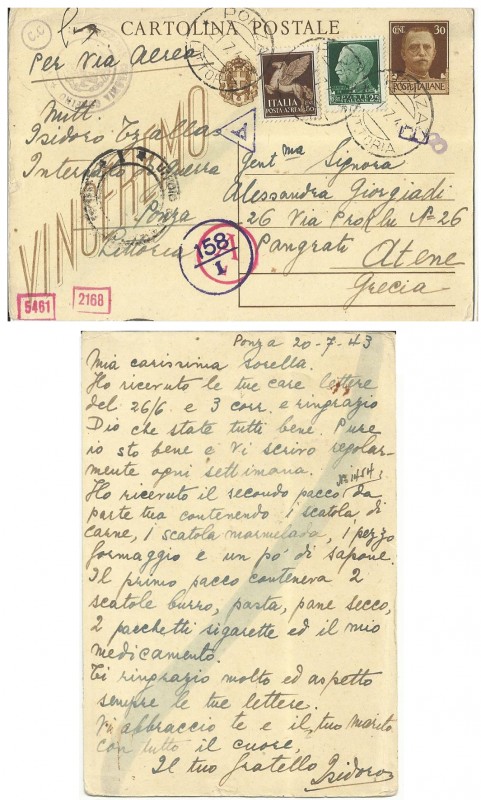 CARTOLINA POSTALE
C.C
Per Via Aerea
CENT. 30
POSTE ITALIANE
ITALIA
POSTA AEREA
PONZA
LITTORIA
VINCEREMO
Mitt.
Isidoro
Internato Guerra
Ponza
Littoria
Gent ma Signora
Alessandra Giorgiadi
26 Via Proklu Nº 26
Pangrati Atene
Grecia
A
158
1
5461
2168
Ponza 20-7-43
Mia carissima sorella.
Ho ricevuto le tue care lettere
del 26/6 e 3 corr. e ringrazio
Dio che state tutti bene. Pure
io sto bene e Vi scrivo regolar-
mente ogni settimana.
Ho ricevuto il secondo pacco da
parte tua contenendo 1 scatola di
carne, 1 scatola marmelada, 1 pezzo
formaggio e un pó di sapone.
Il primo pacco conteneva 2
scatole burro, pasta, pane secco,
2 pacchetti sigarette ed il mio
medicamento.
Ti ringrazio molto ed aspetto
sempre le tue lettere.
Vi abbraccio te e il tuo marito
con tutto il cuore,
Il tuo fratello Isidoro